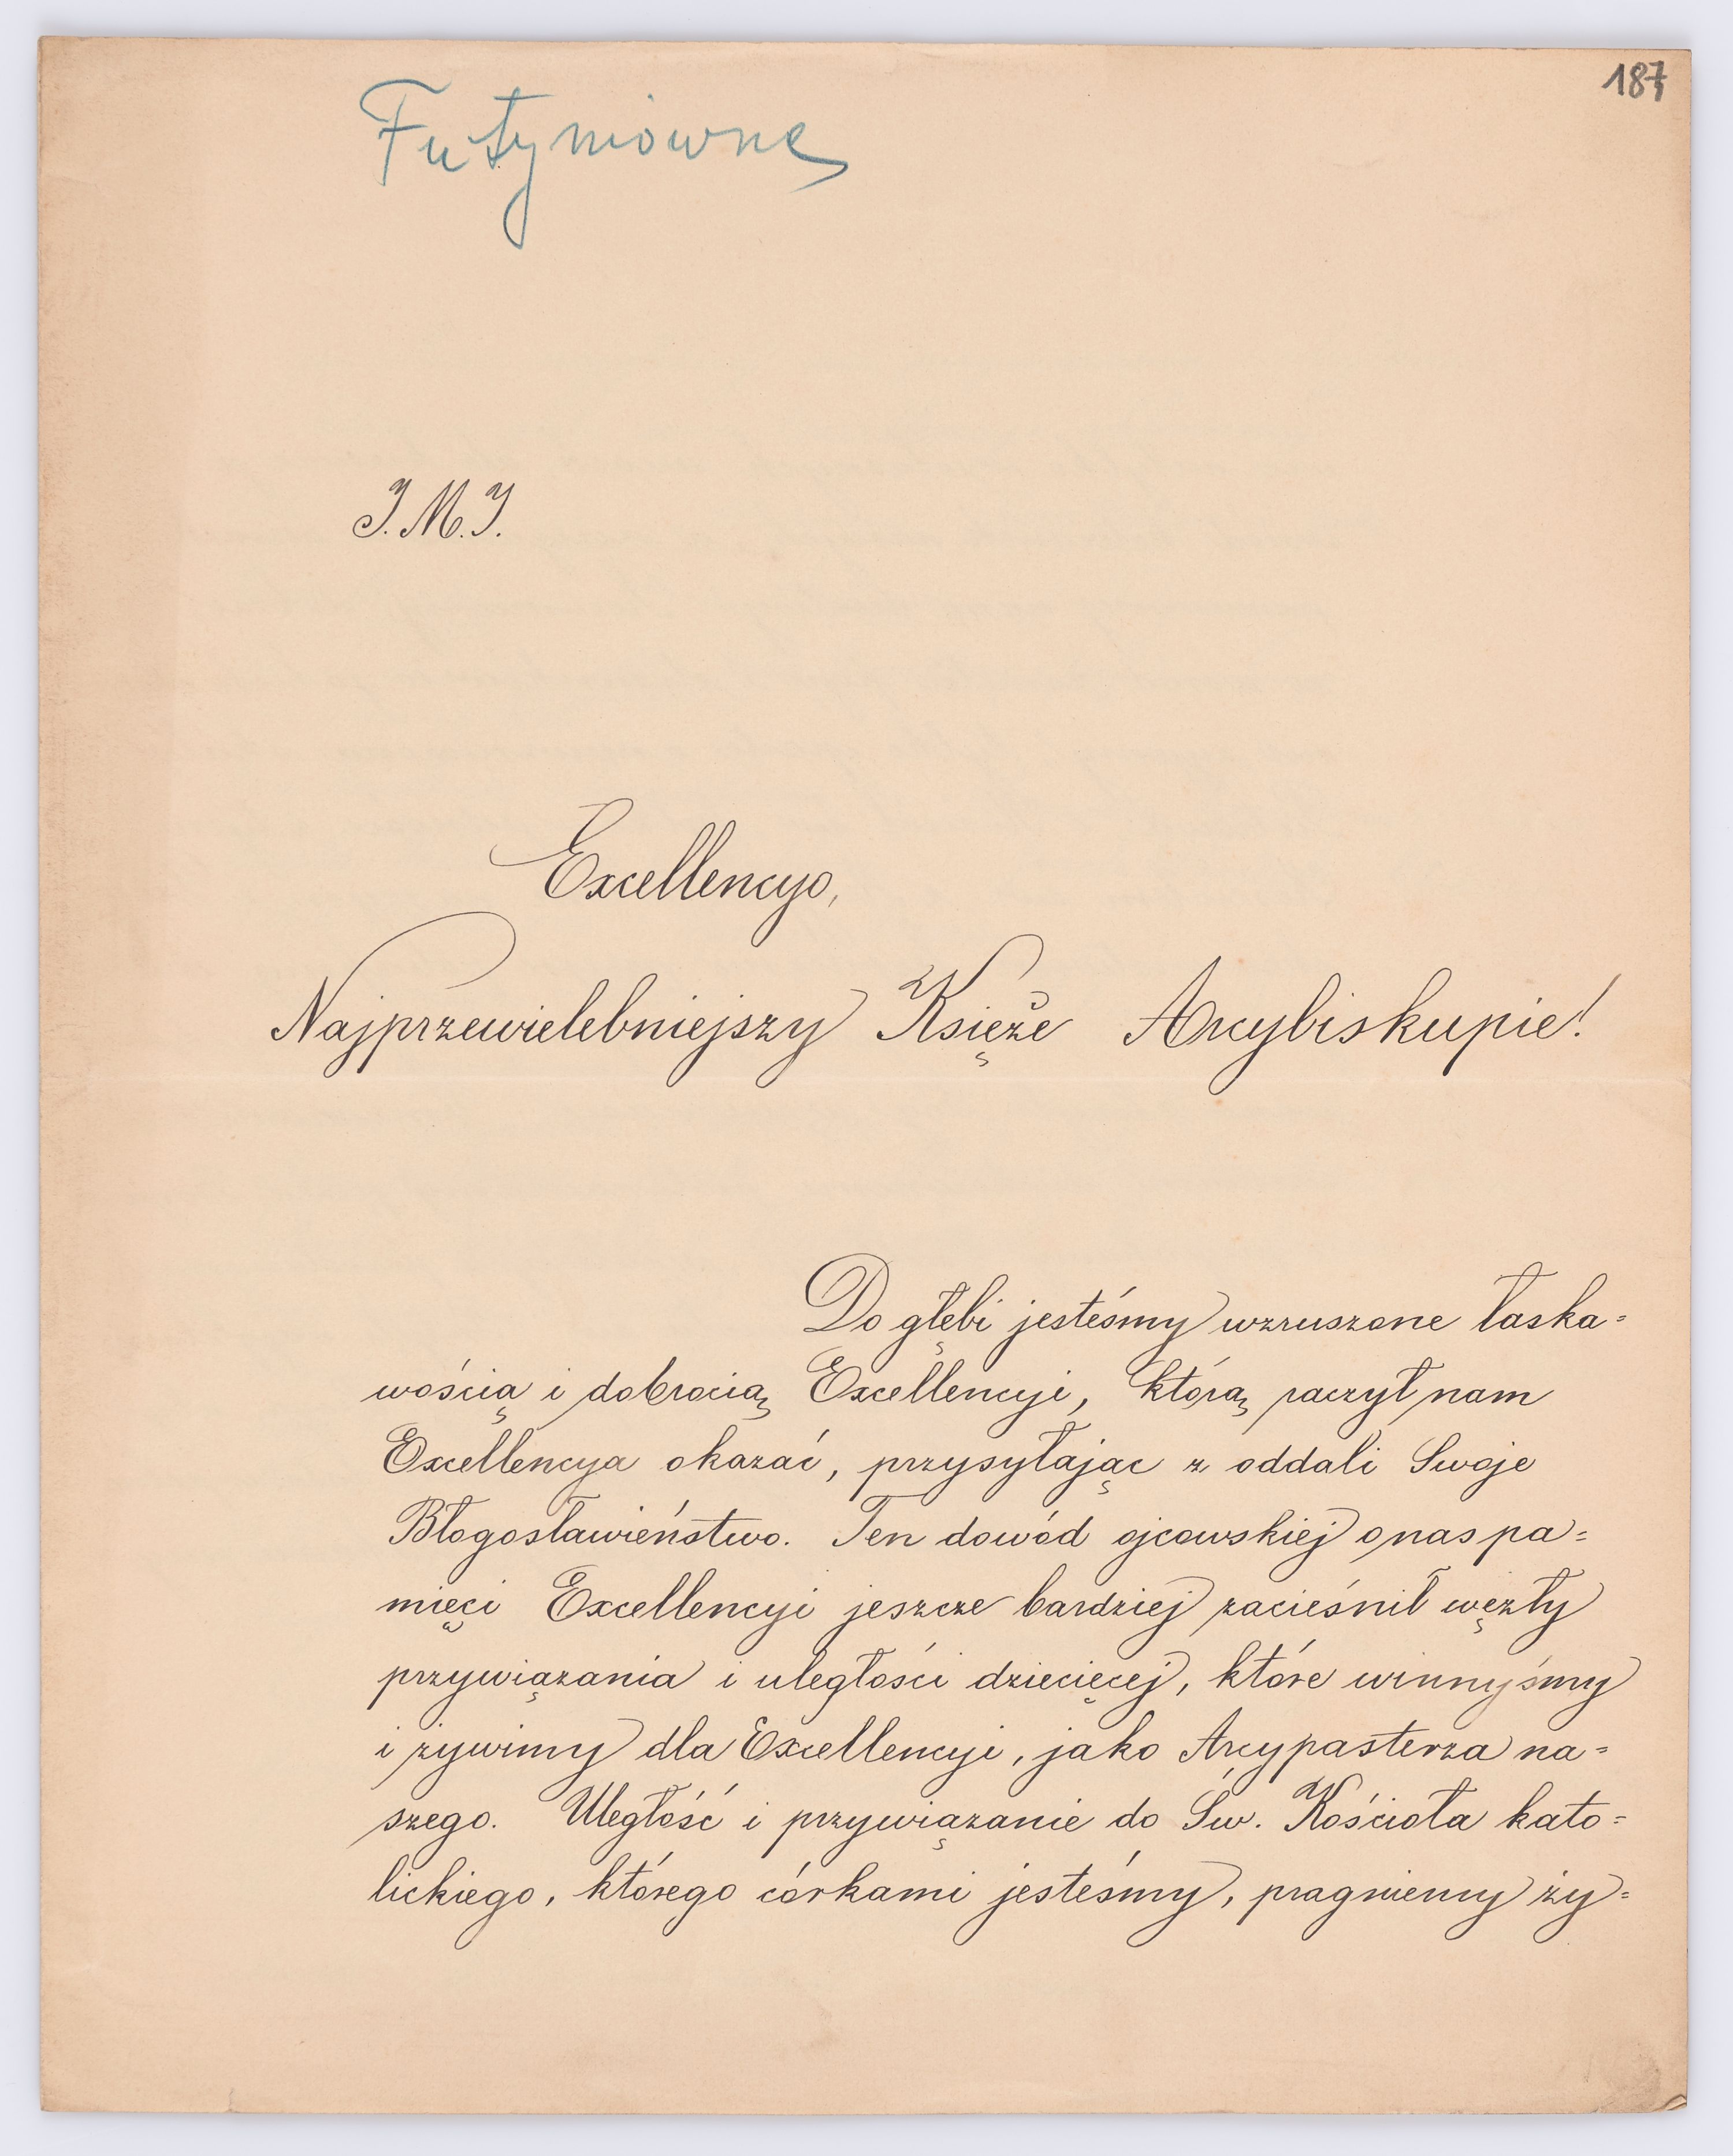 187
Futyniowne
J. M. J.
Excellencyo,
Najprzewielebniejszy Księże Arcybiskupie!
Do głębi jesteśmy wzruszone łaska=
wością i dobrocią Excellencyi, którą raczył nam
Excellencya okazać, przysyłając z oddali Swoje
Błogosławieństwo. Ten dowód ojcowskiej o nas pa=
mięci Excellencyi jeszcze bardziej zacieśnił węzły
przywiązania i uległości dziecięcej, które winnyśmy
i żywimy dla Excellencyi, jako Arcypasterza na=
szego. Uległość i przywiązanie do Św. Kościoła kato=
lickiego, którego córkami jesteśmy, pragniemy ży=